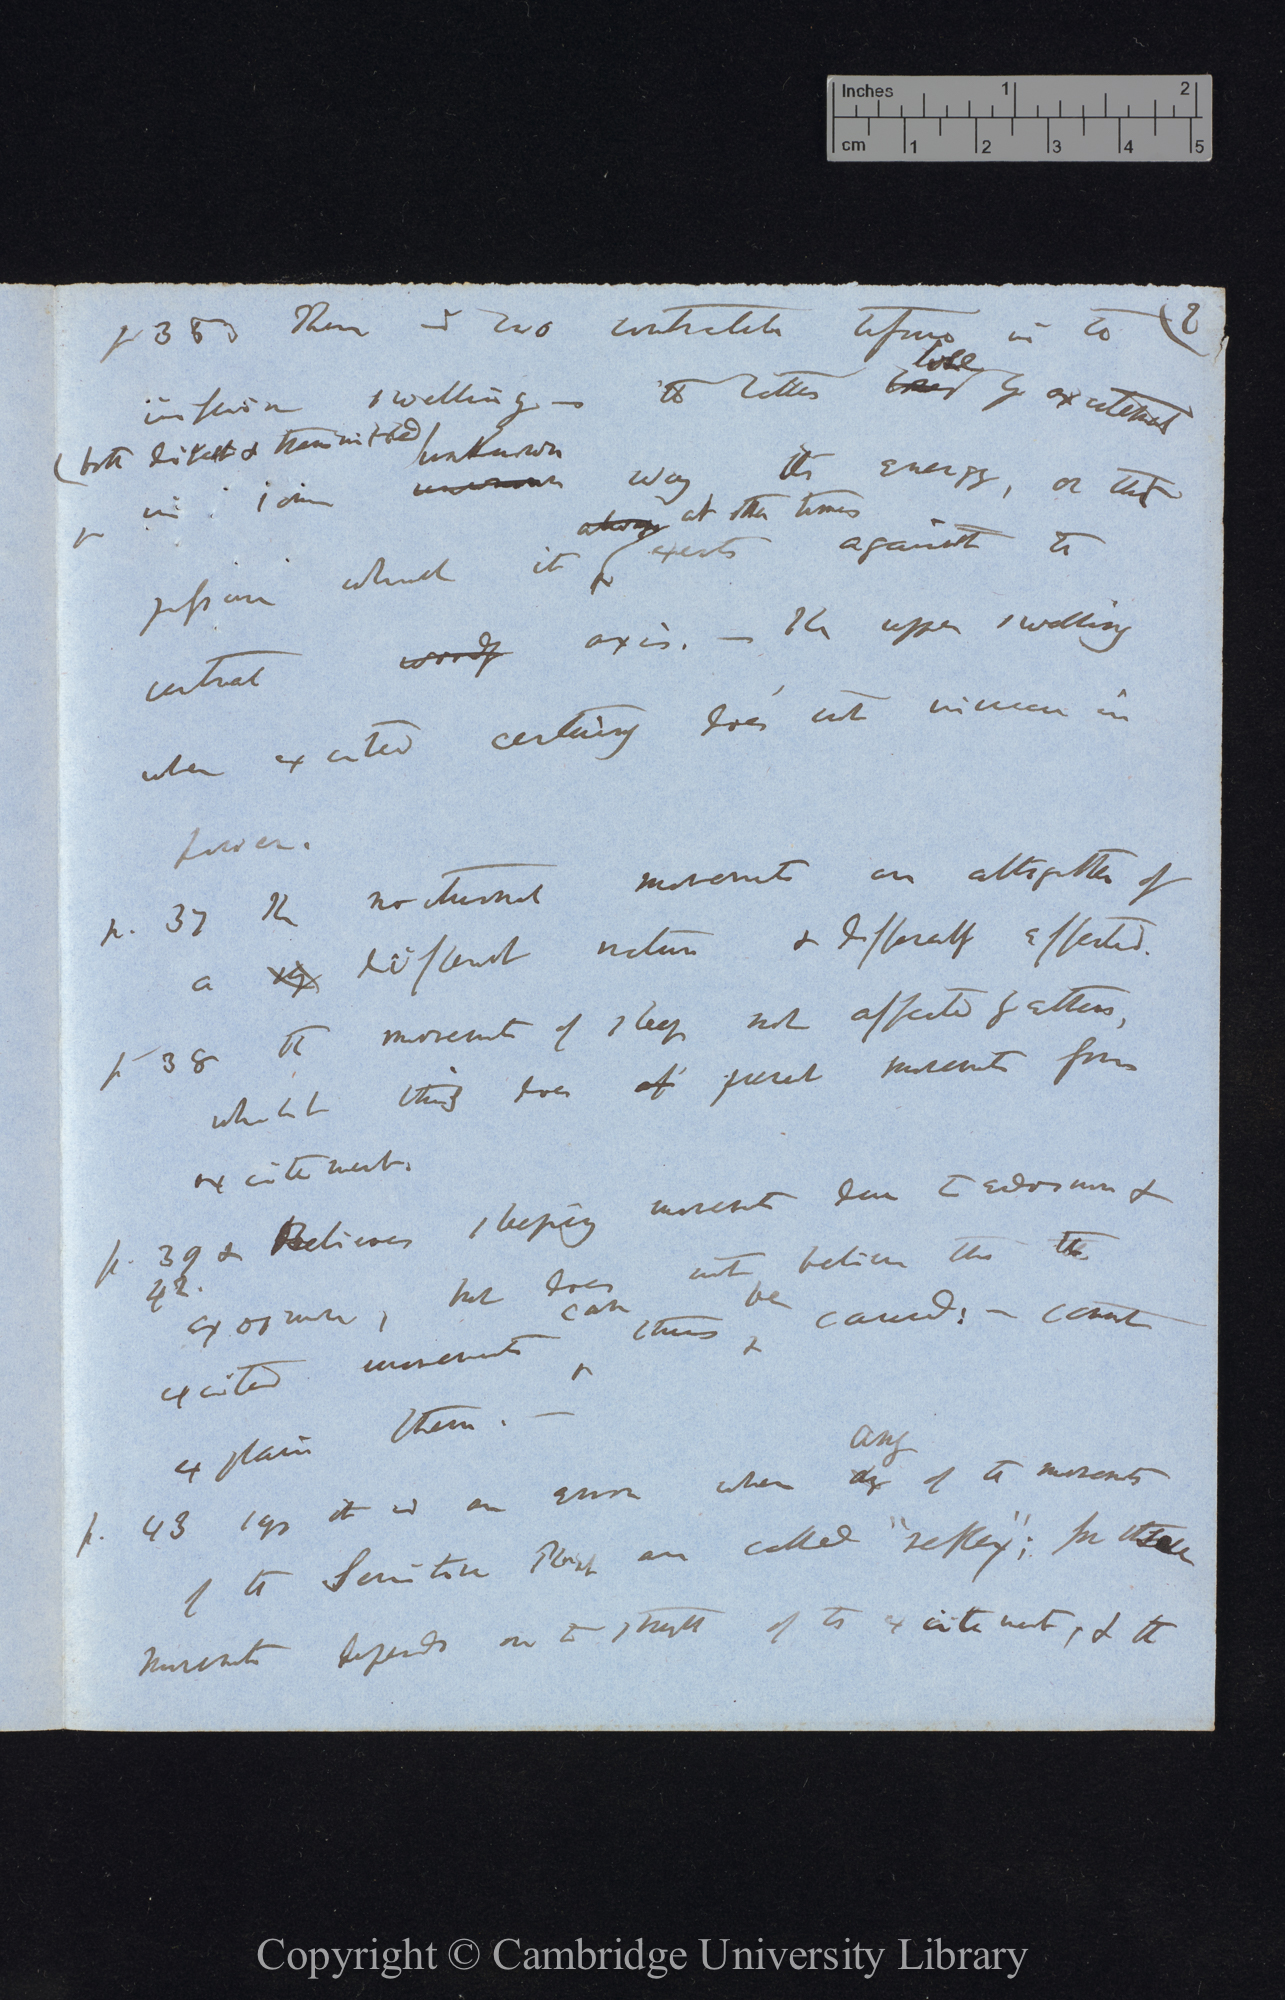 Inches 1 2
cm 1 2 3 4 5
(2
p 35 There is two contractile in to
inferior swelling — the latter lose by excitement
(both direct & transmitted)
in some unknown way the energy, or the
always at other times
pressure which it exerts against the
central woody axis. — The upper swelling
when excited certainly does not increase in
power.
p. 37 The nocturnal movements are altogether of
a different nature & differently affected.
p 38 the movements of sleep not affected by ether,
whilst this does movements from
excitement.
p. 39 & Believes sleeping movements due to endosmose &
42.
exosmose, but does not believe the
can be
excited movements thus caused: — cannot
explain them. —
any
p. 43 says it is an error when of the movements
of the Sensitive Plant are called "reflex"; for these
movements depends on the strength of the excitement, & the
Copyright © Cambridge University Library